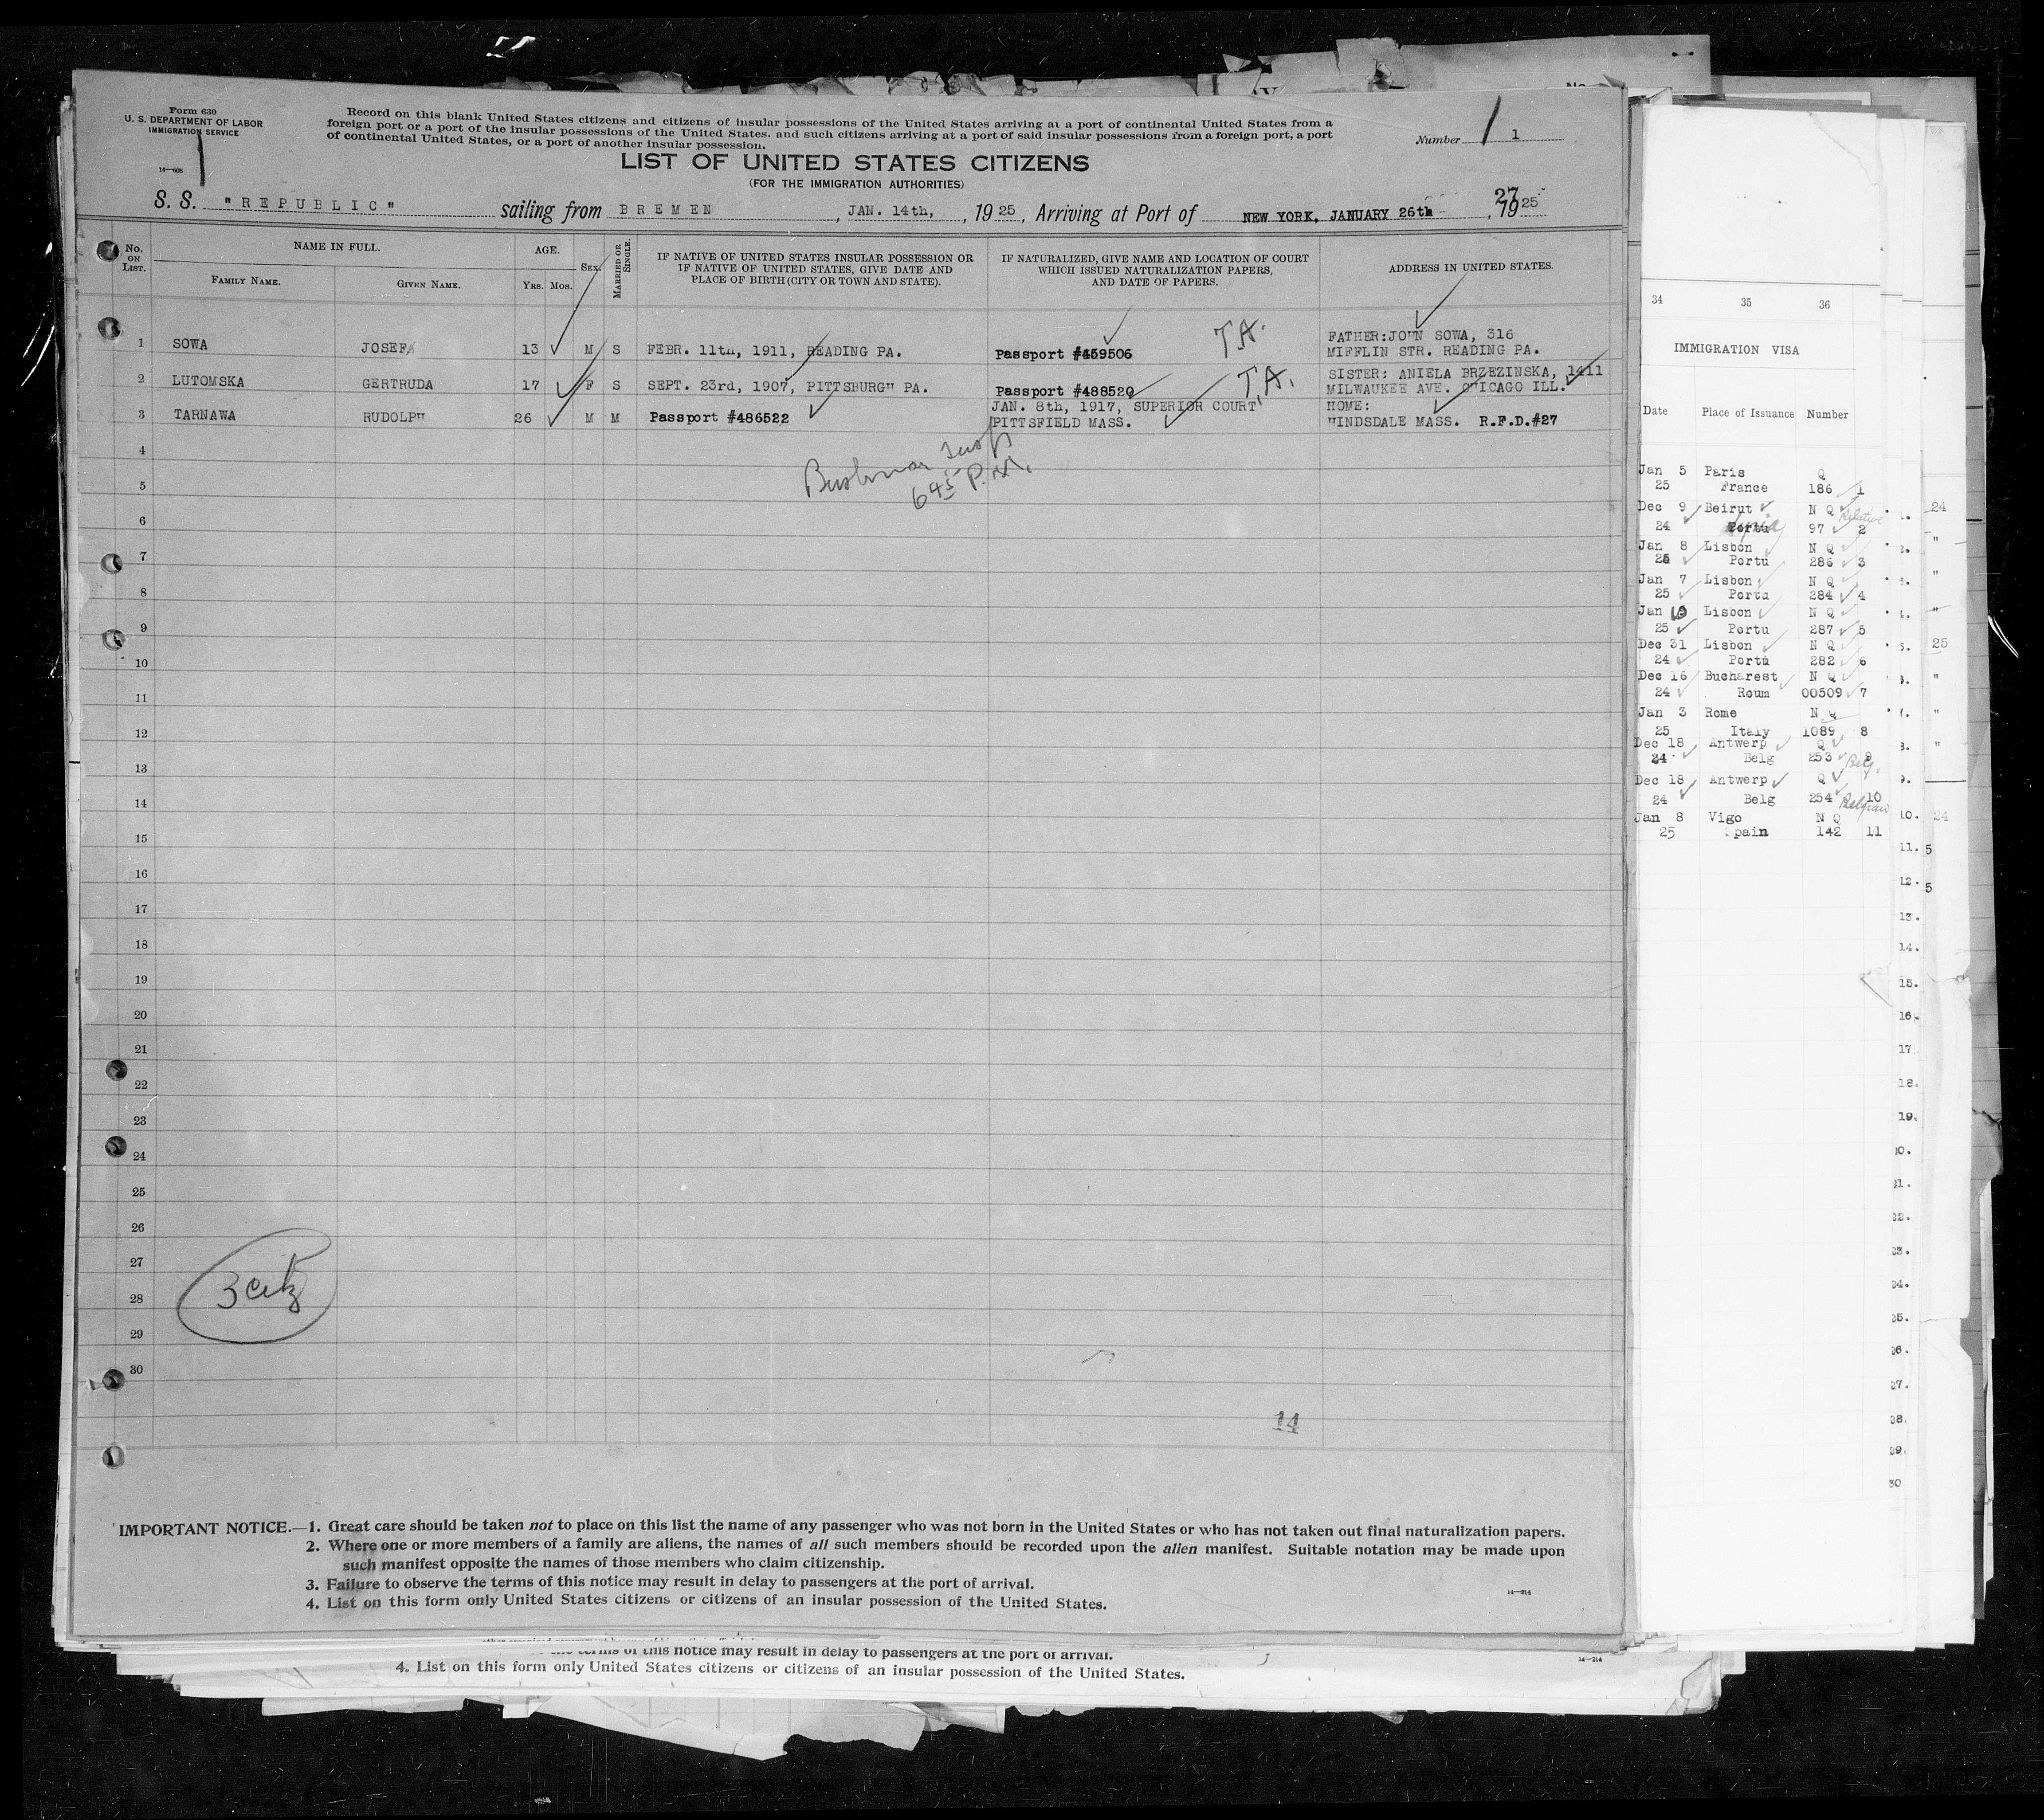 Form 630
U. S. DEPARTMENT OF LABOR
IMMIGRATION SERVICE
14—608
Record on this blank United States citizens and citizens of insular possessions of the United States arriving at a port of continental United States from a
foreign port or a port of the insular possessions of the United States. and such citizens arriving at a port of said insular possessions from a foreign port, a port
of continental United States, or a port of another insular possession.
Number 1
LIST OF UNITED STATES CITIZENS
(FOR THE IMMIGRATION AUTHORITIES)
S. S. "REPUBLIC" sailing from BREMEN, JAN. 14th, 1925, Arriving at Port of NEW YORK, JANUARY 26th 27, 1925
No. ON LIST.
NAME IN FULL.
FAMILY NAME.
GIVEN NAME.
AGE.
YRS. MOS.
SEX.
MARRIED OR SINGLE.
IF NATIVE OF UNITED STATES INSULAR POSSESSION OR
IF NATIVE OF UNITED STATES, GIVE DATE AND
PLACE OF BIRTH (CITY OR TOWN AND STATE).
IF NATURALIZED, GIVE NAME AND LOCATION OF COURT
WHICH ISSUED NATURALIZATION PAPERS,
AND DATE OF PAPERS.
ADDRESS IN UNITED STATES.
1 SOWA JOSEF 13 M S FEBR. 11th, 1911, READING PA. Passport #459506 T.A. FATHER:JOHN SOWA, 316
MIFFLIN STR. READING PA.
2 LUTOMSKA GERTRUDA 17 F S SEPT. 23rd, 1907, PITTSBURGH PA. Passport #488520 T.A. SISTER: ANIELA BRZEZINSKA, 1411
MILWAUKEE AVE. CHICAGO ILL.
3 TARNAWA RUDOLPH 26 M M Passport #486522 JAN. 8th, 1917, SUPERIOR COURT, PITTSFIELD MASS. HOME:
HINDSDALE MASS. R.F.D.#27
645 P.M.
4
5
6
7
8
9
10
11
12
13
14
15
16
17
18
19
20
21
22
23
24
25
26
27
28
29
30
14
IMPORTANT NOTICE.—1. Great care should be taken not to place on this list the name of any passenger who was not born in the United States or who has not taken out final naturalization papers.
2. Where one or more members of a family are aliens, the names of all such members should be recorded upon the alien manifest. Suitable notation may be made upon
such manifest opposite the names of those members who claim citizenship.
3. Failure to observe the terms of this notice may result in delay to passengers at the port of arrival.
4. List on this form only United States citizens or citizens of an insular possession of the United States.
14—214
terms of this notice may result in delay to passengers at the port of arrival.
4. List on this form only United States citizens or citizens of an insular possession of the United States.
14—214
34 35 36
IMMIGRATION VISA
Date Place of Issuance Number
Jan 5 Paris Q
25 France 186 1
Dec 9 Beirut N Q Relative
24 97 2
Jan 8 Lisbon N Q
25 Portu 286 3
Jan 7 Lisbon N Q
25 Portu 284 4
Jan 10 Lisbon N Q
25 Portu 287 5
Dec 31 Lisbon N Q
24 Portu 282 6
Dec 16 Bucharest N Q
24 Roum 00509 7
Jan 3 Rome N Q
25 Italy 1089 8
Dec 18 Antwerp Q
24 Belg 253 9 Belg.
Dec 18 Antwerp Q
24 Belg 254 10 Belgian
Jan 8 Vigo N Q
25 Spain 142 11